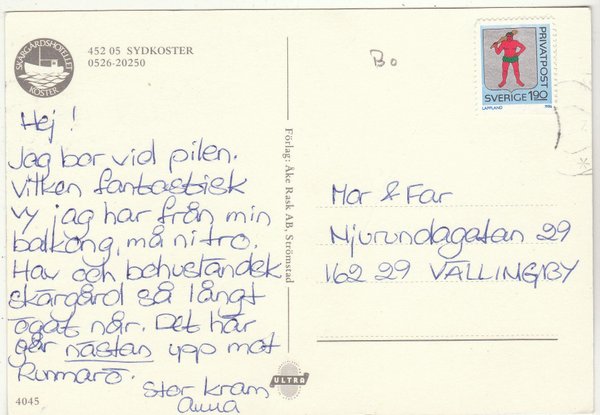 SKÄRGÅRDSHOTELLET
KOSTER
452 05 SYDKOSTER
0526-20250
Bo
PRIVATPOST
SVERIGE 1.90
LAPPLAND
1986
Hej!
Jag bor vid pilen.
Vilken fantastisk
vy jag har från min
balkong, må ni tro.
Hav och bohusländsk
skärgård så långt
ögat når. Det här
går nästan upp mot
Runmarö.
Stor kram
Anna
Förlag: Åke Rask AB, Strömstad
Mor & Far
Njurundagatan 29
162 29 VÄLLINGBY
ULTRA
4045